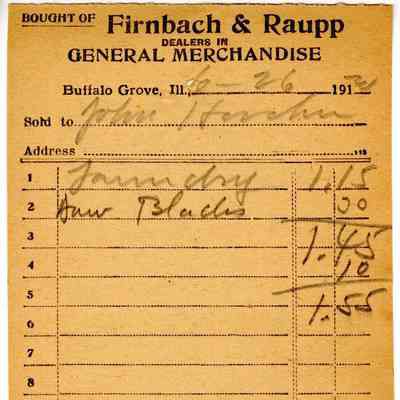 BOUGHT OF Firnbach & Raupp
DEALERS IN
GENERAL MERCHANDISE
Buffalo Grove, Ill., 6-26 191
Sold to John
Address
1 Laundry 1.15
2 Saw Blades 30
3 1.45
4 10
5 1.55
6
7
8